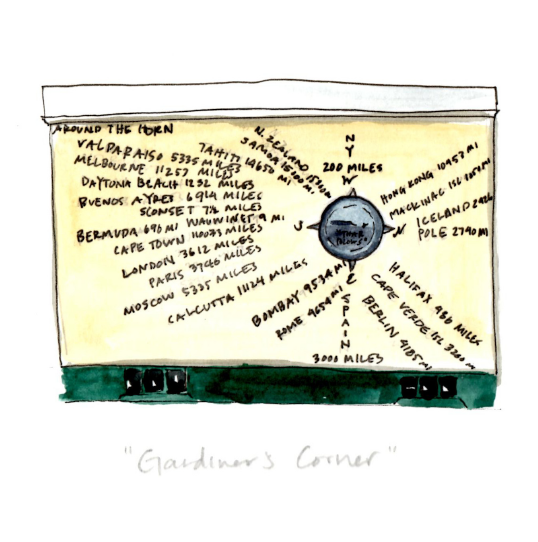 AROUND THE HORN
VALPARAISO 5335 MILES
MELBOURNE 11257 MILES
DAYTONA BEACH 1232 MILES
BUENOS AYRES 6914 MILES
SCONSET 7½ MILES
BERMUDA 690 MI WAUWINET 9 MI
CAPE TOWN 11073 MILES
LONDON 3612 MILES
PARIS 3746 MILES
MOSCOW 5335 MILES
CALCUTTA 11124 MILES
TAHITI 14650 MI
SAMOA 15200 MI
N. ZEALAND
NY
200 MILES
W
S
N
E
HONG KONG 10453 MI
MACKINAC ISL
ICELAND
POLE 2790 MI
HALIFAX 486 MILES
CAPE VERDE ISL 3200 M
BERLIN 4105 MI
BOMBAY 9534 MI
ROME 4654 MI
SPAIN
3000 MILES
"Gardiner's Corner"